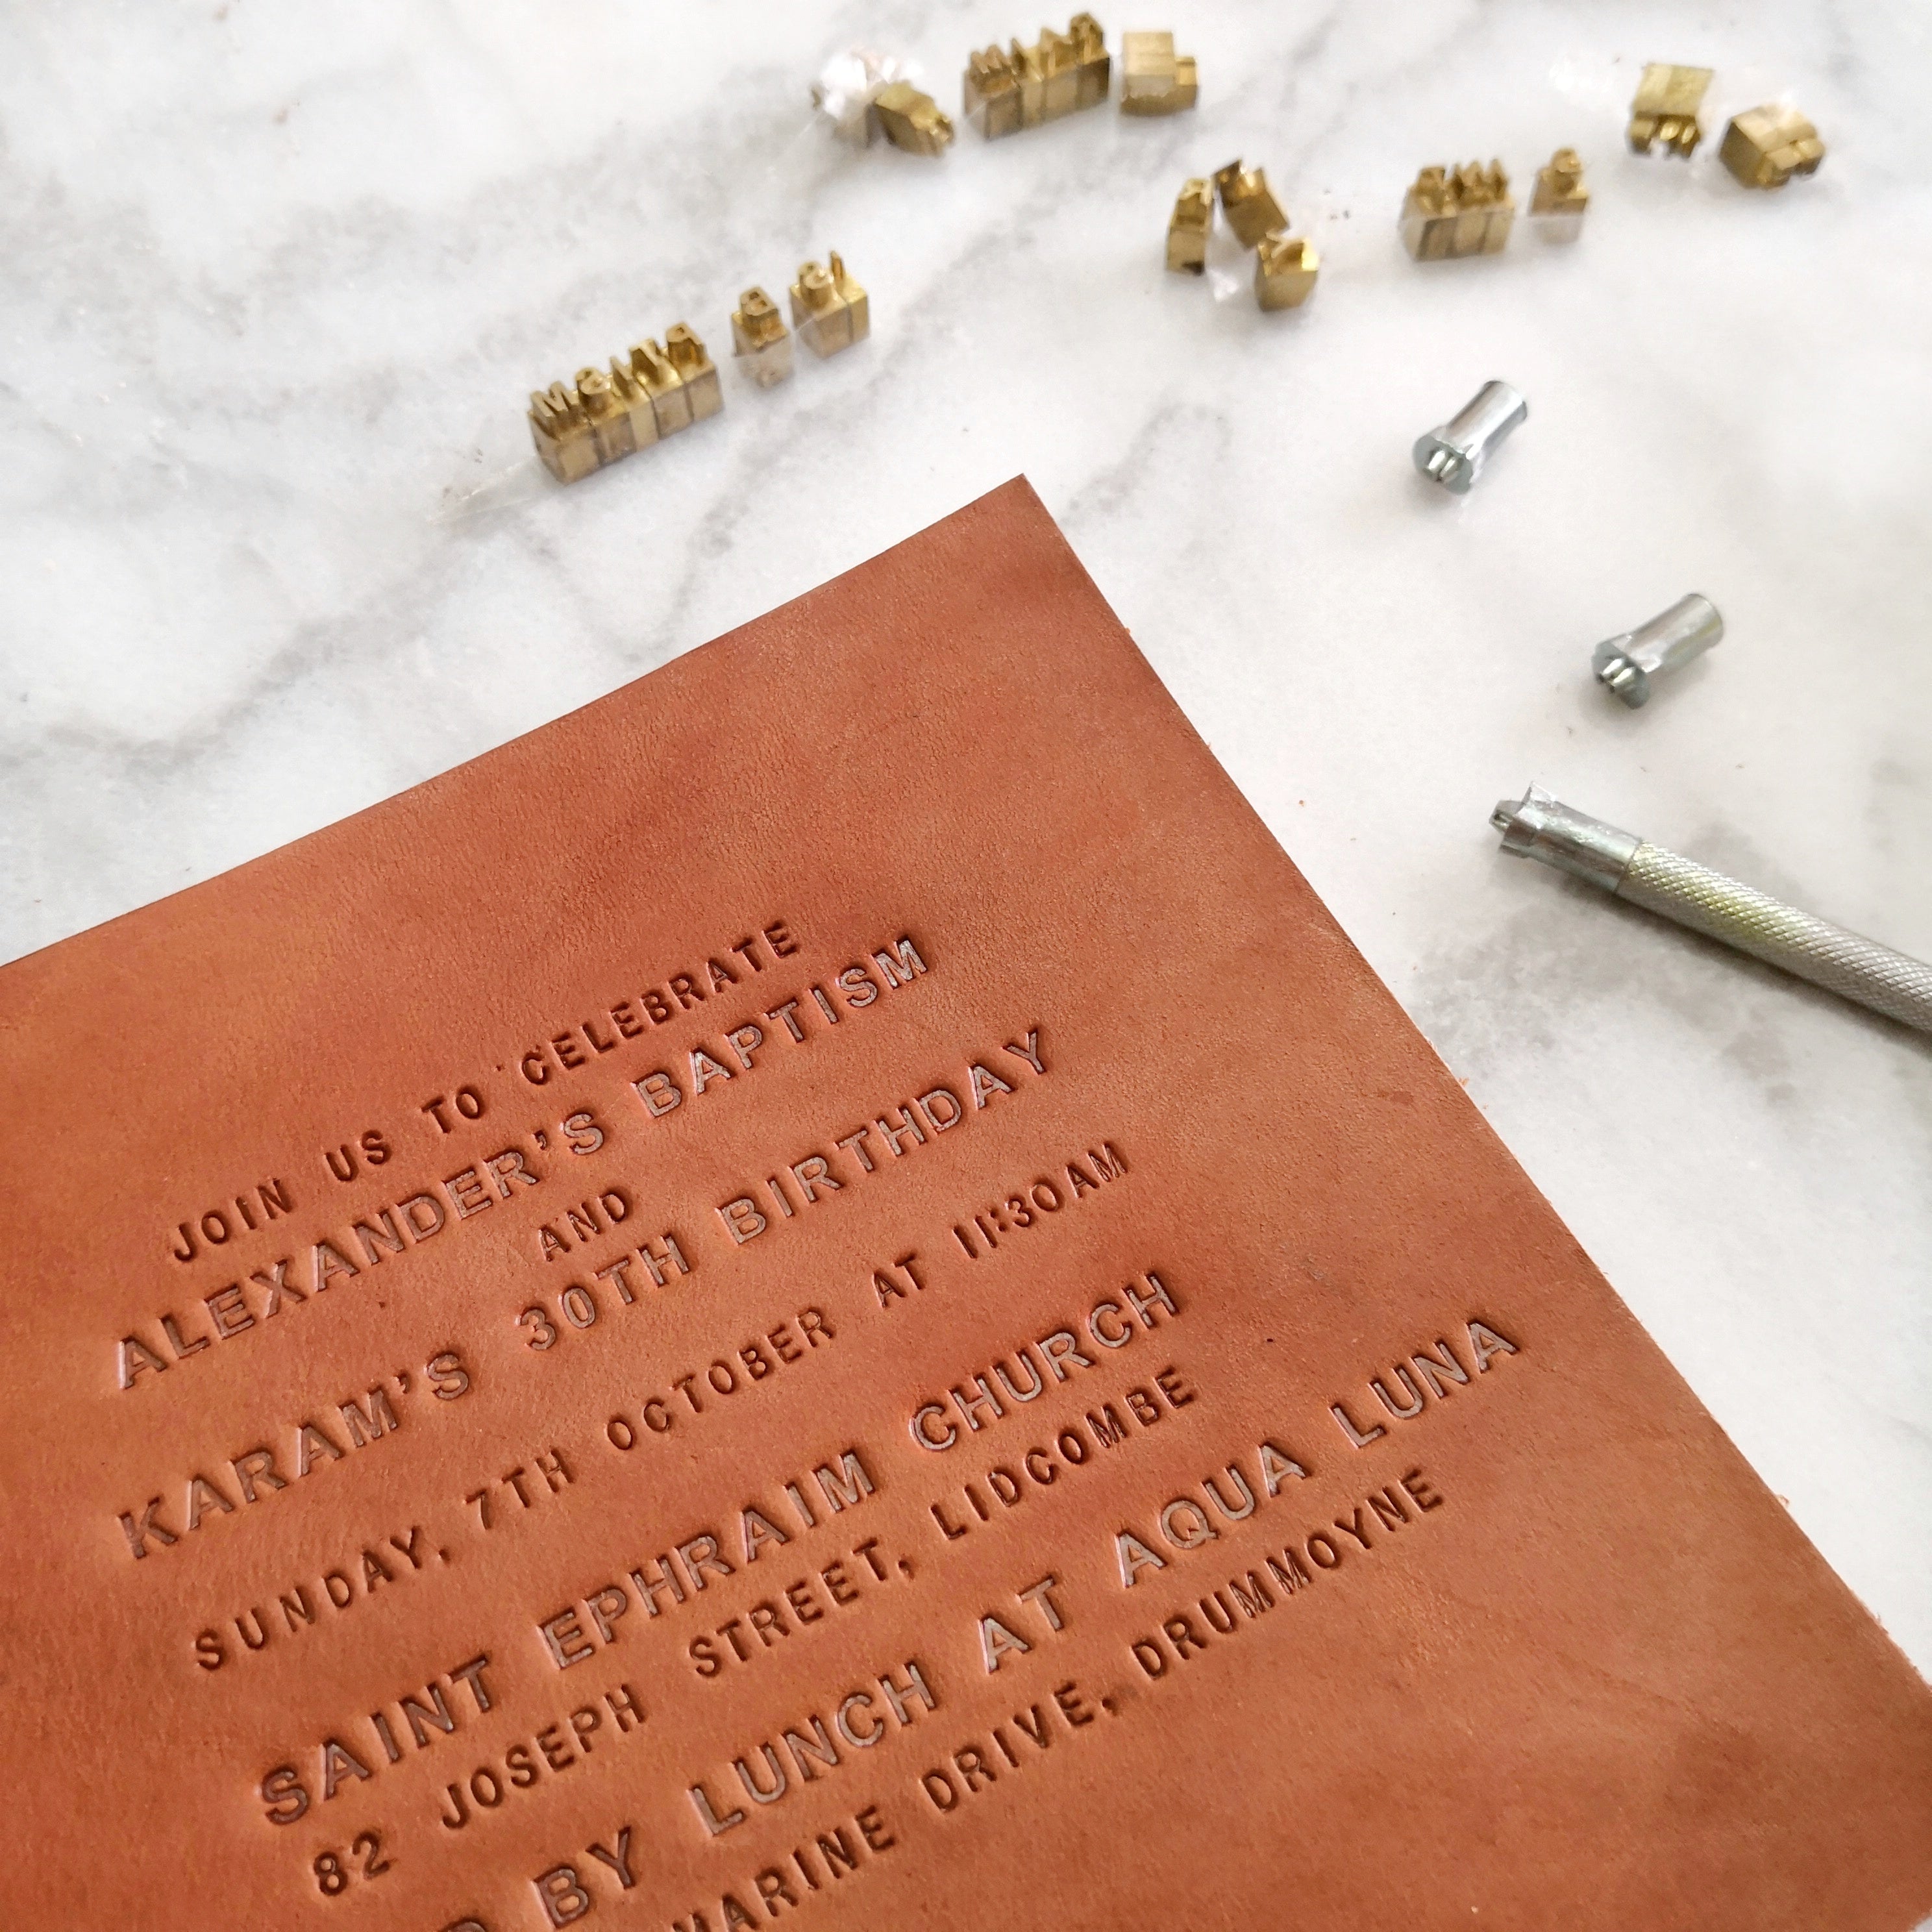 JOIN US TO CELEBRATE
ALEXANDER'S BAPTISM
AND
KARAM'S 30TH BIRTHDAY
SUNDAY, 7TH OCTOBER AT 11:30AM
SAINT EPHRAIM CHURCH
82 JOSEPH STREET, LIDCOMBE
BY LUNCH AT AQUA LUNA
DRIVE, DRUMMOYNE